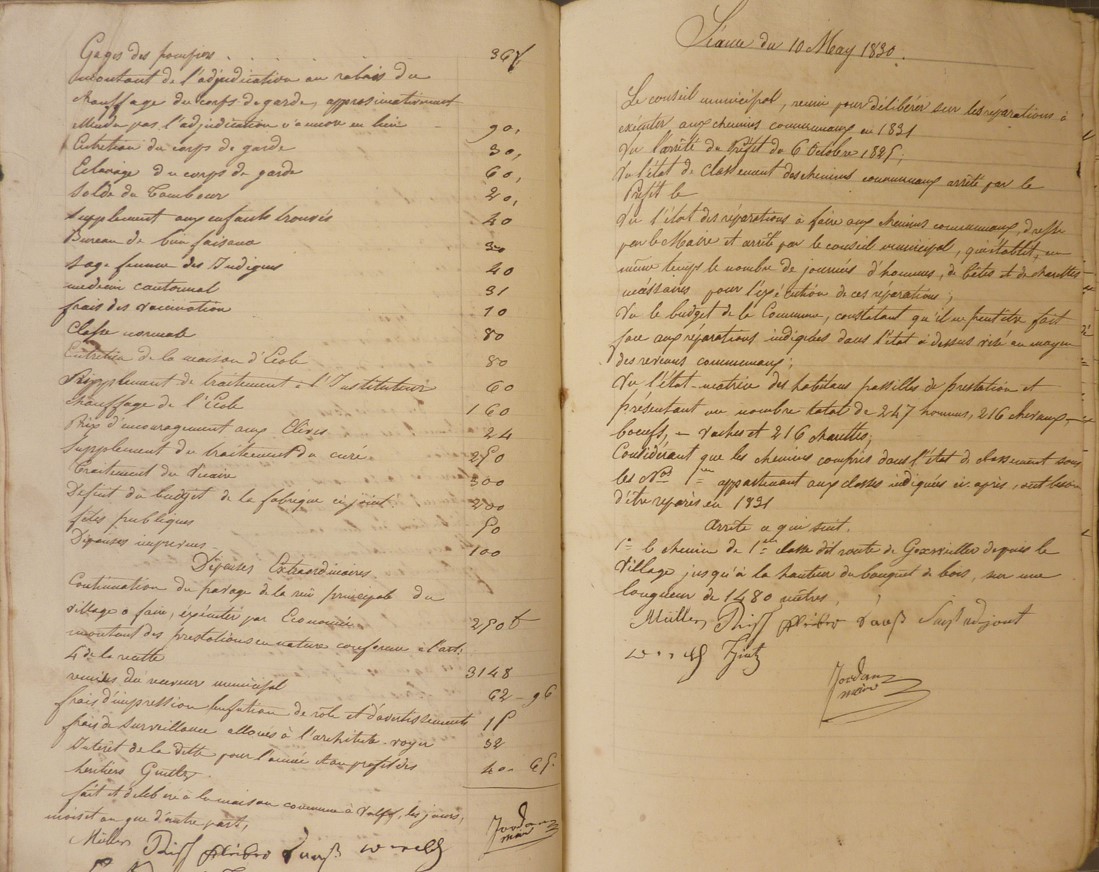 Gages des pompiers 36
montant de l'adjudication au rabais du
chauffage du corps de garde, approximativement
l'adjudication encore eu lieu 90,
Entretien du corps de garde 30,
Eclairage du corps de garde 60,
Solde du Tambour 20,
Supplement aux enfants trouvés 40
Bureau de bienfaisance 30
Sage femme des Indigens 40
medecin cantonnal 31
frais des vaccination 10
Classe normale 80
Entretien de la maison d'Ecole 80
Supplement de traitement à l'Instituteur 60
Chauffage de l'Ecole 160
Prix d'encouragement aux Elèves 24
Supplement du traitement du curé 250
Traitement du Vicaire 300
Deficit du budget de la fabrique ci joint 200
fêtes publiques 50
Dépenses imprevues 100
Dépenses Extraordinaires.
Continuation du pavage de la rue principale du
village a faire, éxécuter par Economie 250
montant des prestations en nature conforme à l'art.
4 de la 3148
remises du receveur municipal 62 - 96
frais d'impression de role et d'avertissements 15
frais de surveillance alloués à l'architecte-voyer 32
Interet de la dette pour l'année au profit des
heritiers 40 - 65
fait et délibéré à la maison commune à Valff, les jours,
mois et an que d'autre part,
Müller Jordan
maire
Séance du 10 May 1830.
Le conseil municipal, réuni pour délibérer sur les réparations à
éxécuter aux chemins communaux en 1831
Vu l'arrêté du Préfet du 6 Octobre 1825,
Vu l'état de classement des chemins communaux arrêté par le
Préfet le
Vu l'état des réparations à faire aux chemins communaux, dressé
par le Maire et arrêté par le conseil municipal, qui établit, en
même temps le nombre de journées d'hommes, de bêtes et de charettes
nécéssaires pour l'éxécution de ces réparations;
Vu le budget de la Commune, constatant qu'il ne peut être fait
face aux réparations indiquées dans l'état ci dessus visé au moyen
des revenus communaux;
Vu l'état-matrice des habitans passibles de prestation et
présentant un nombre total de 247 hommes, 216 chevaux,
boeufs, - vaches et 216 charettes;
Considérant que les chemins compris dans l'état de classement sous
les Nos 1er appartenant aux classes indiquées ci après, ont besoin
d'être reparés en 1831
Arrête ce qui suit.
1° le chemin de 1ere classe dit route de Goxwiller depuis le
village jusqu'à la hauteur du bouquet de bois, sur une
longueur de 1480 mètres,
Müller adjoint
Jordan
maire